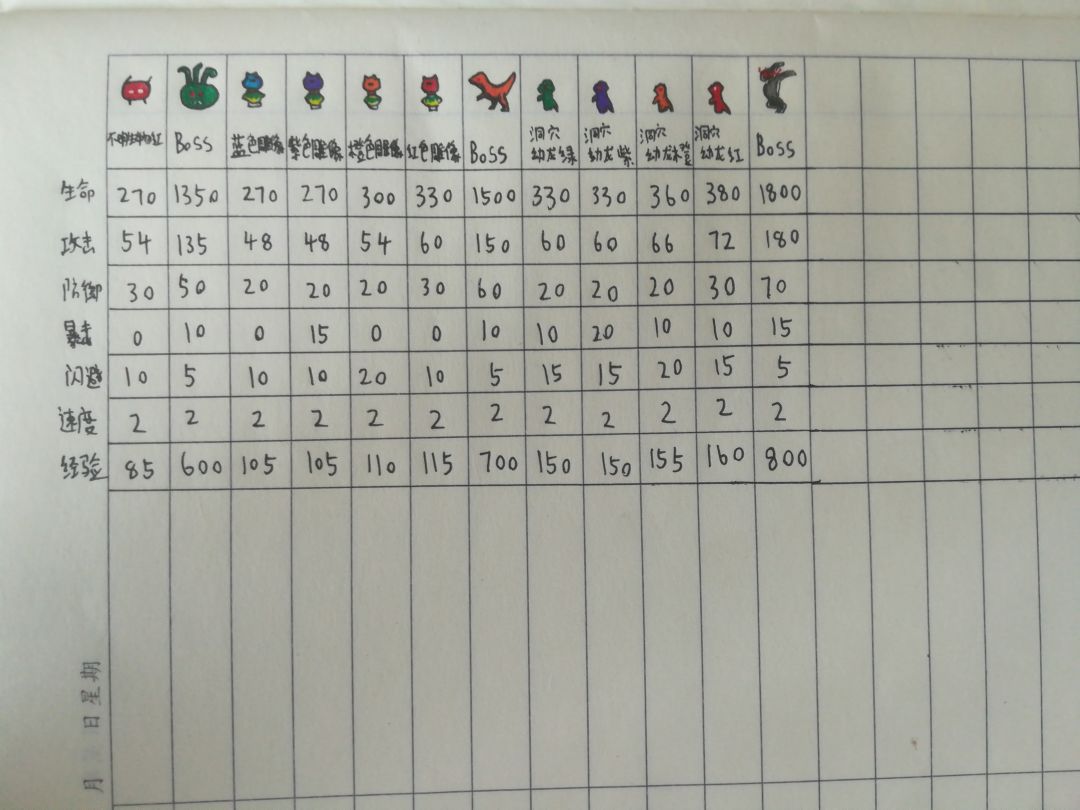 不明生物红 Boss 蓝色雕像 紫色雕像 橙色雕像 红色雕像 Boss 洞穴幼龙绿 洞穴幼龙紫 洞穴幼龙橙 洞穴幼龙红 Boss
生命 270 1350 270 270 300 330 1500 330 330 360 380 1800
攻击 54 135 48 48 54 60 150 60 60 66 72 180
防御 30 50 20 20 20 30 60 20 20 20 30 70
暴击 0 10 0 15 0 0 10 10 20 10 10 15
闪避 10 5 10 10 20 10 5 15 15 20 15 5
速度 2 2 2 2 2 2 2 2 2 2 2 2
经验 85 600 105 105 110 115 700 150 150 155 160 800
月 日 星期